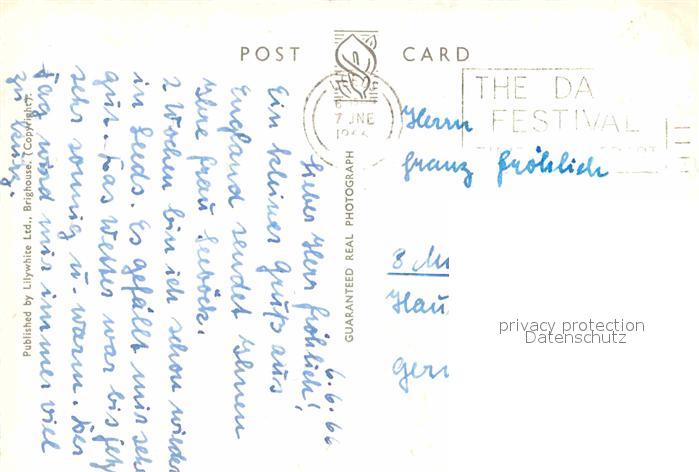 POST CARD
7 JNE
1966
THE DA
FESTIVAL
6.6.66
Lieber Herr Fröhlich!
Ein kleiner Gruß aus
England sendet Ihnen
Ihre Frau Seeböck.
2 Wochen bin ich schon wieder
in Leeds. Es gefällt mir sehr
gut. Das Wetter war bis jetzt
sehr sonnig u. warm. Der
Tag wird mir immer viel
zu kurz.
Published by Lilywhite Ltd., Brighouse. (Copyright).
GUARANTEED REAL PHOTOGRAPH
Herrn
Franz Fröhlich
8 Mü
Hau
Ger
privacy protection
Datenschutz